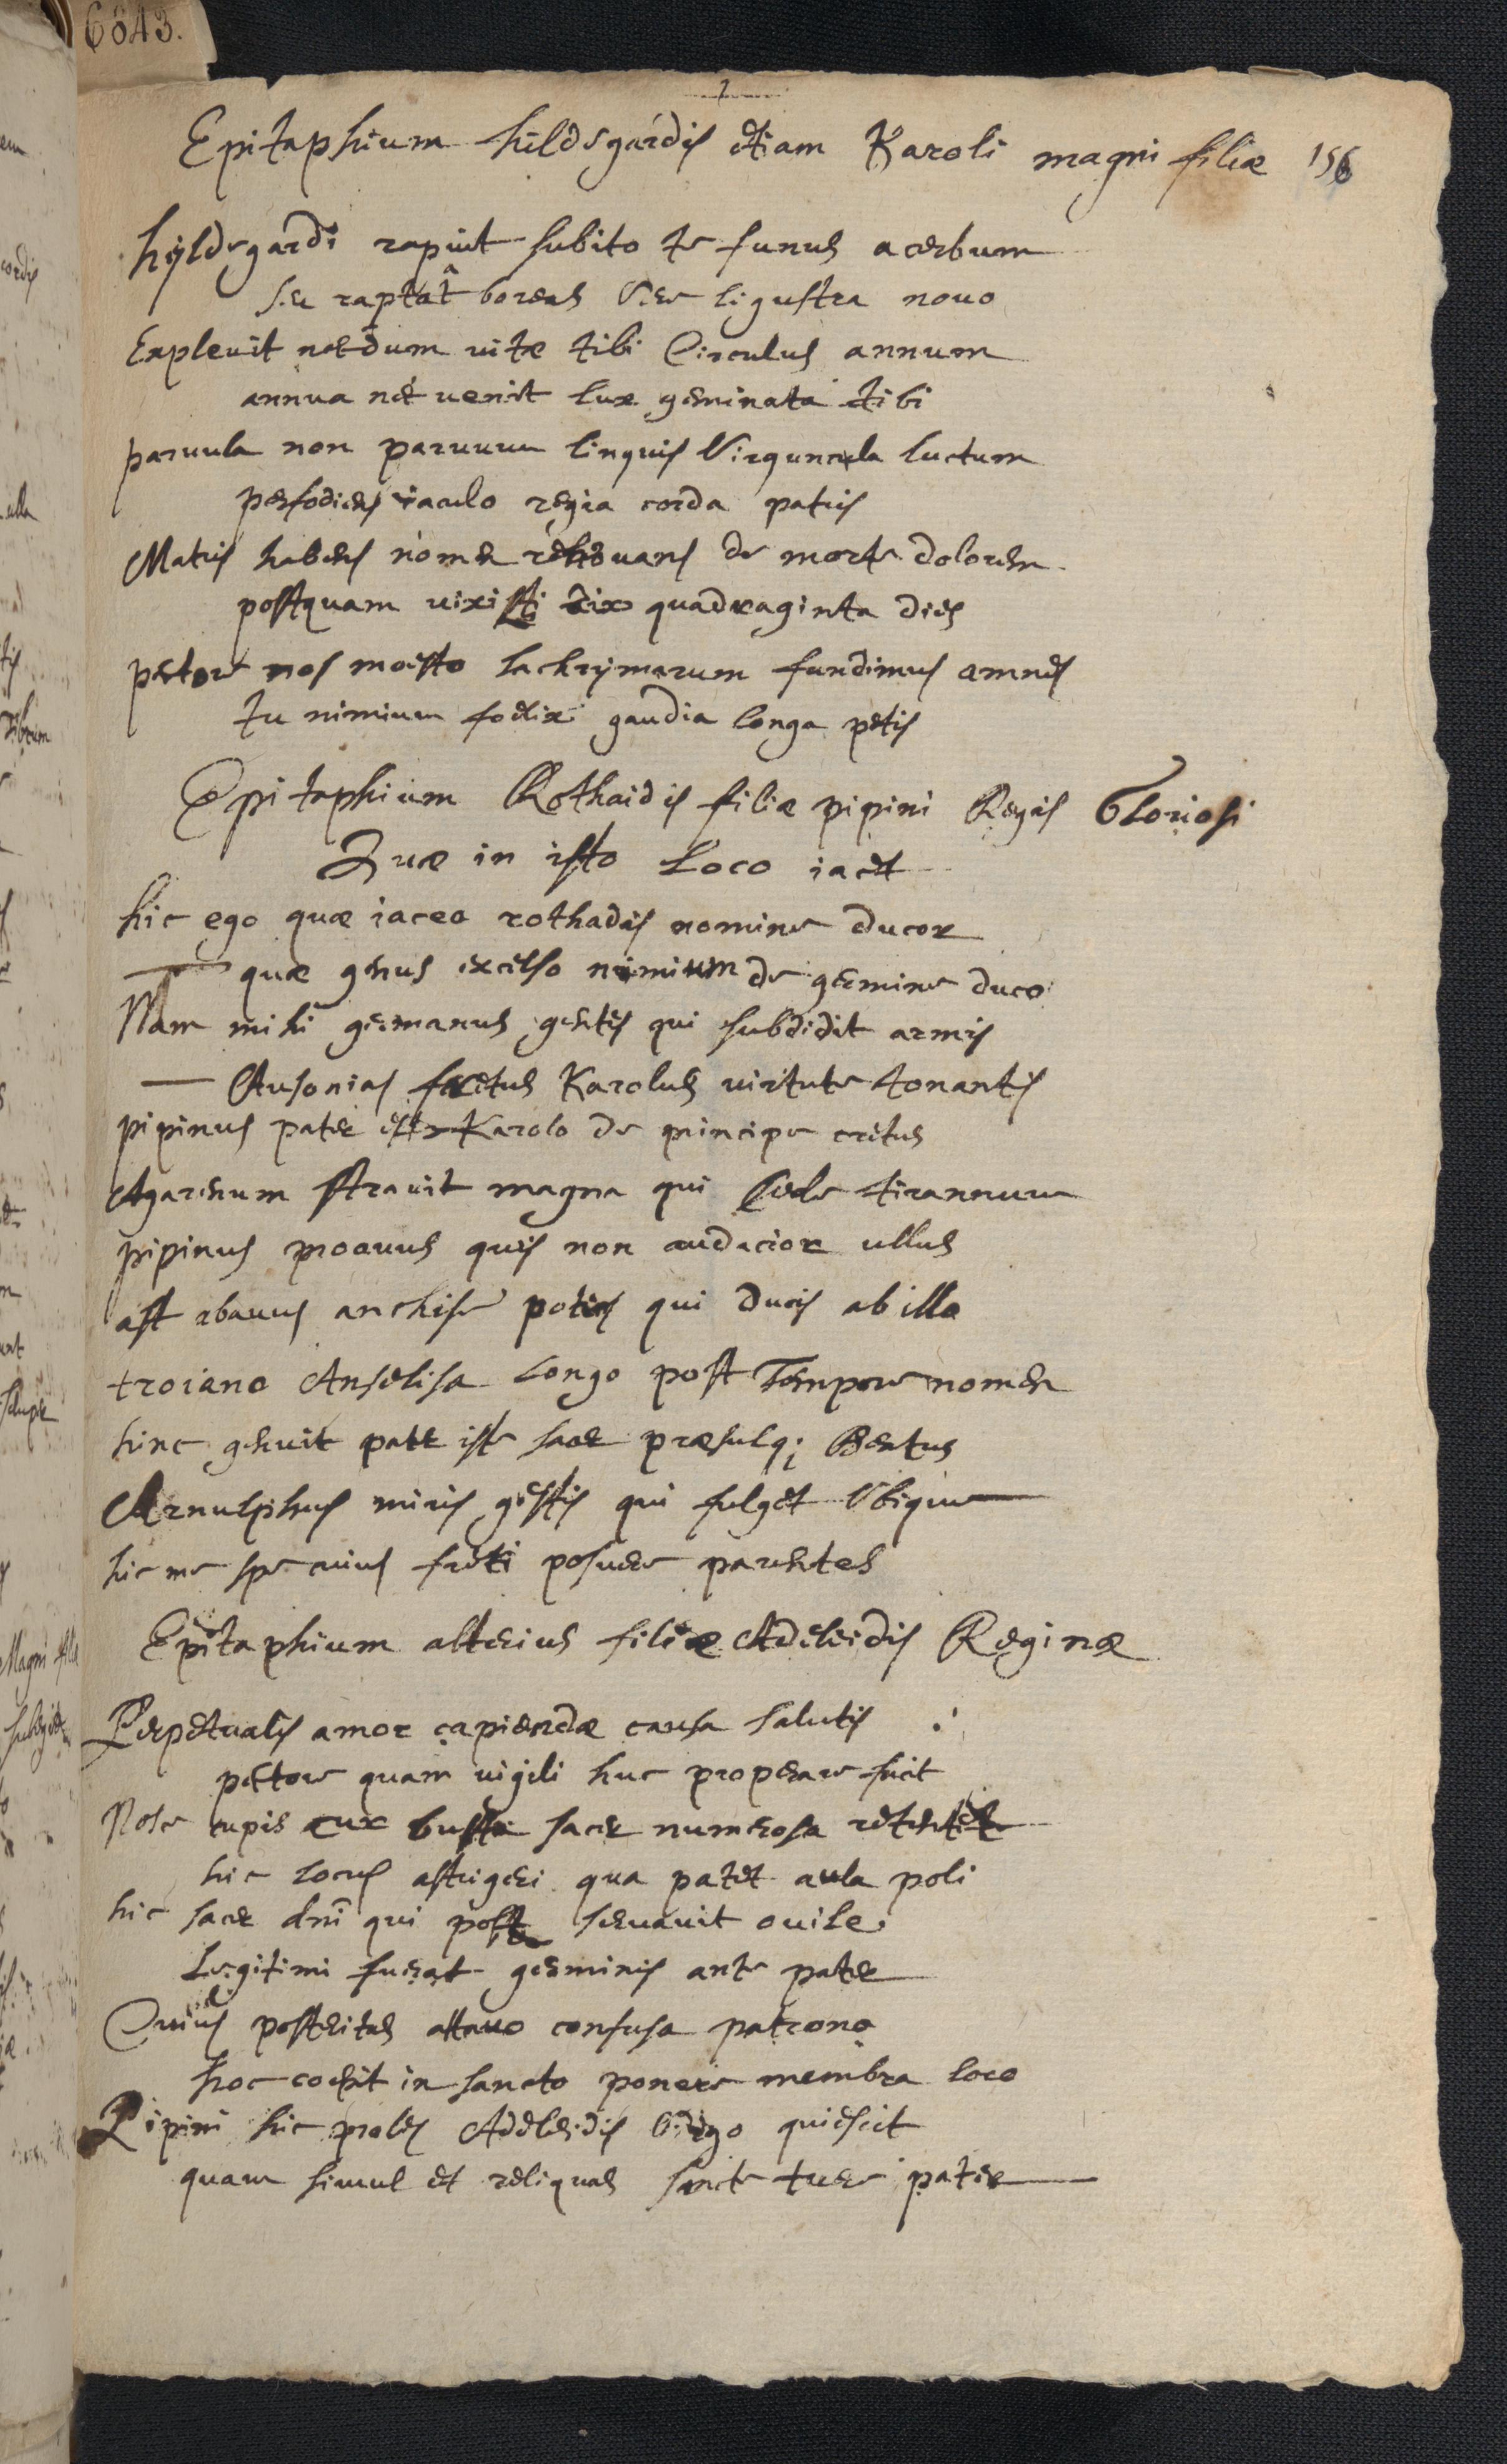 6843.
Epitaphium hildegardis etiam Karoli magni filiæ 156
hyldegardi rapuit subito te funus acerbum
seu raptat boreas Ver ligustra nouo
Expleuit necdum uitæ tibi Circulus annum
annua nec uenit lux geminata tibi
paruula non paruum linquis Virguncula luctum
perfodiens iaculo regia corda patris
Matris habens nomen renouans de morte dolorem
postquam uixisti dix quadraginta dies
pectore nos mœsto lachrymarum fundimus amnes
tu nimium foelix gaudia longa petis
Epitaphium Rothaidis filiæ pipini Regis Gloriosi
Quæ in isto Loco iacet
hic ego quæ iaceo rothadis nomine ducor
quæ genus excelso nimium de germine duco
Nam mihi germanus gentes qui subdidit armis
Ausonias fretus Karolus uirtute tonantis
pipinus pater est Karolo de principe cretus
Agarenum strauit magna qui Cede tirannum
pipinus proauus quis non audacior ullus
ast abauus anchise potens qui ducis ab illo
troiano Anselisa Longo post Tempore nomen
hinc genuit pater iste sacer præsulq; Beatus
Arnulphus miris gestis qui fulget Vbique
hic me spe cuius freti posuere parentes
Epitaphium alterius filiæ Adeleidis Reginæ
Perpetualis amor capiendæ causa salutis
pectore quam uigili huc properare facit
Nosse cupis cur busta sacer numerosa retentet
hic locus astrigeri qua patet aula poli
hic sacer dni qui post seruauit ouile
Legitimi fuerat germinis ante pater
Cuius posteritas attauo confusa patrono
hoc coepit in sancto ponere membra loco
Pipini hic proles Adeleidis Virgo quiescit
quam simul et reliquas sancte tuere pater